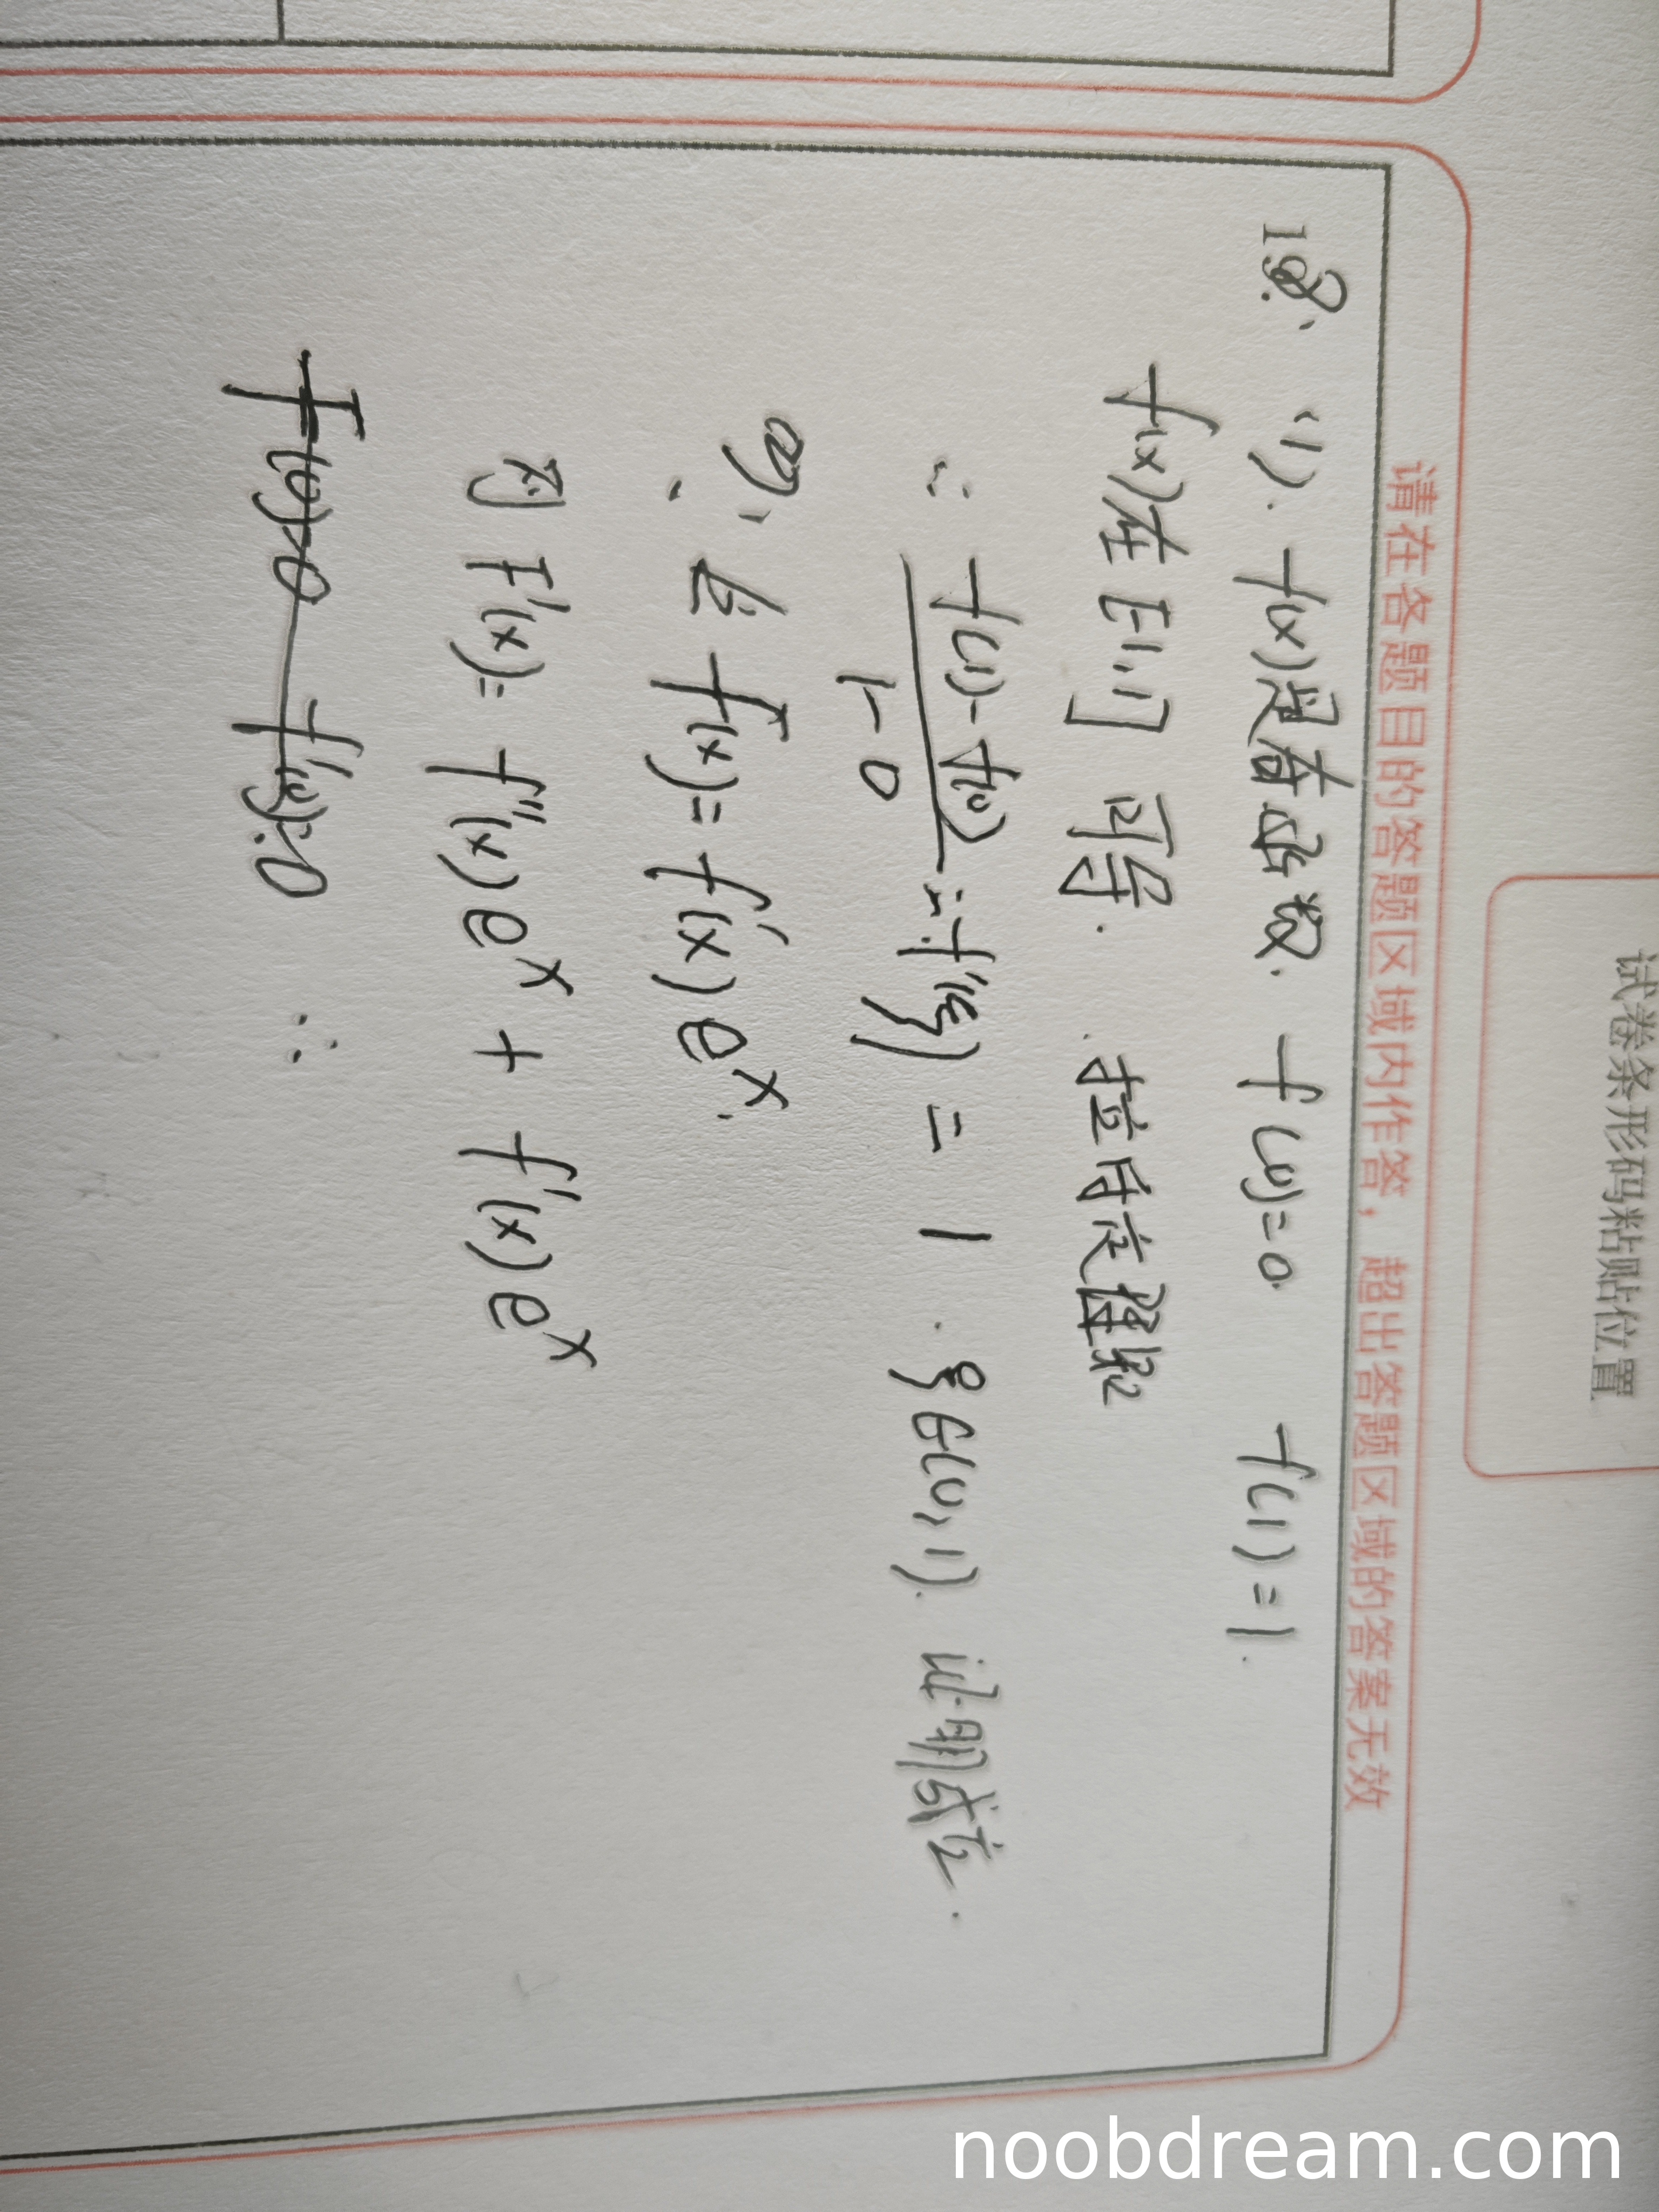 试卷条形码粘贴位置
请在各题目的答题区域内作答，超出答题区域的答案无效
18. (1). f(x)是奇函数. f(0)=0. f(1)=1.
f(x)在[-1,1]可导. 拉氏定理知
∴ f(1)-f(0)/1-0 = f'(ξ) = 1. ξ∈(0,1). 证明成立.
(2). 令 F(x)=f'(x)e^x.
则 F'(x)= f''(x)e^x + f'(x)e^x
F(0)=0 f'(0)=0 ∴
noobdream.com